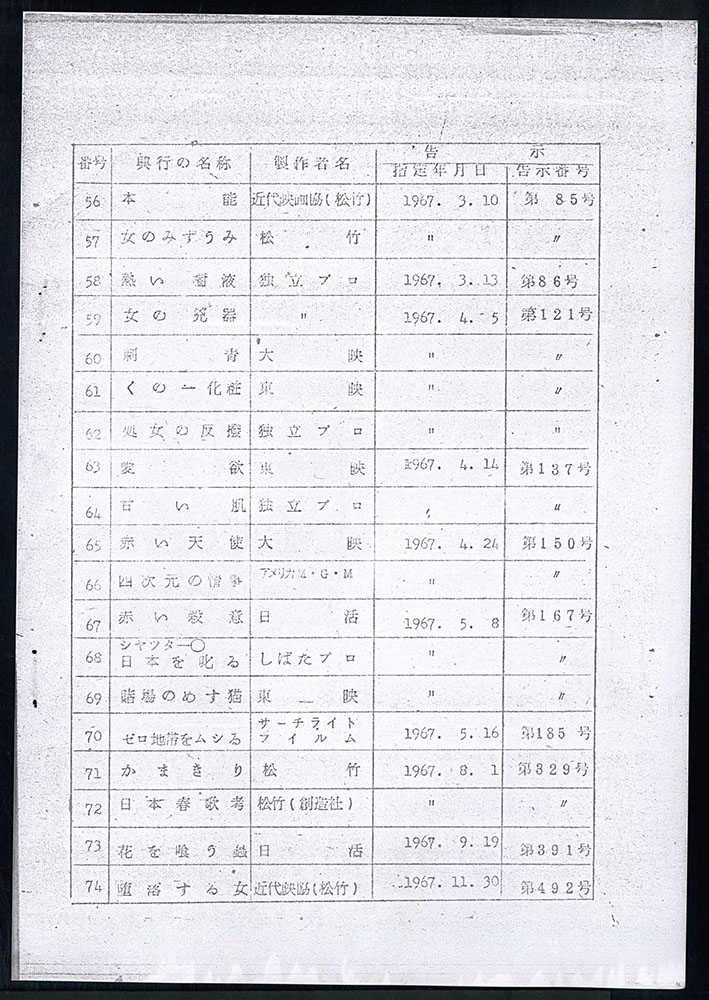 告示
番号 興行の名称 製作者名 指定年月日 告示番号
56 本能 近代映画協(松竹) 1967. 3. 10 第 85号
57 女のみずうみ 松竹 〃 〃
58 熱い 液 独立プロ 1967. 3. 13 第86号
59 女の兇器 〃 1967. 4. 5 第121号
60 刺青 大映 〃 〃
61 くの一化粧 東映 〃 〃
62 処女の反撥 独立プロ 〃 〃
63 愛欲 東映 1967. 4. 14 第137号
64 甘い肌 独立プロ 〃 〃
65 赤い天使 大映 1967. 4. 24 第150号
66 四次元の情事 アメリカM・G・M 〃 〃
67 赤い殺意 日活 1967. 5. 8 第167号
シヤツター〇
68 日本を叱る しばたプロ 〃 〃
69 賭場のめす猫 東映 〃 〃
サーチライト
70 ゼロ地帯をムシる フイルム 1967. 5. 16 第185号
71 かまきり 松竹 1967. 8. 1 第329号
72 日本春歌考 松竹(創造社) 〃 〃
73 花を喰う蟲 日活 1967. 9. 19 第391号
74 堕落する女 近代映協(松竹) 1967. 11. 30 第492号